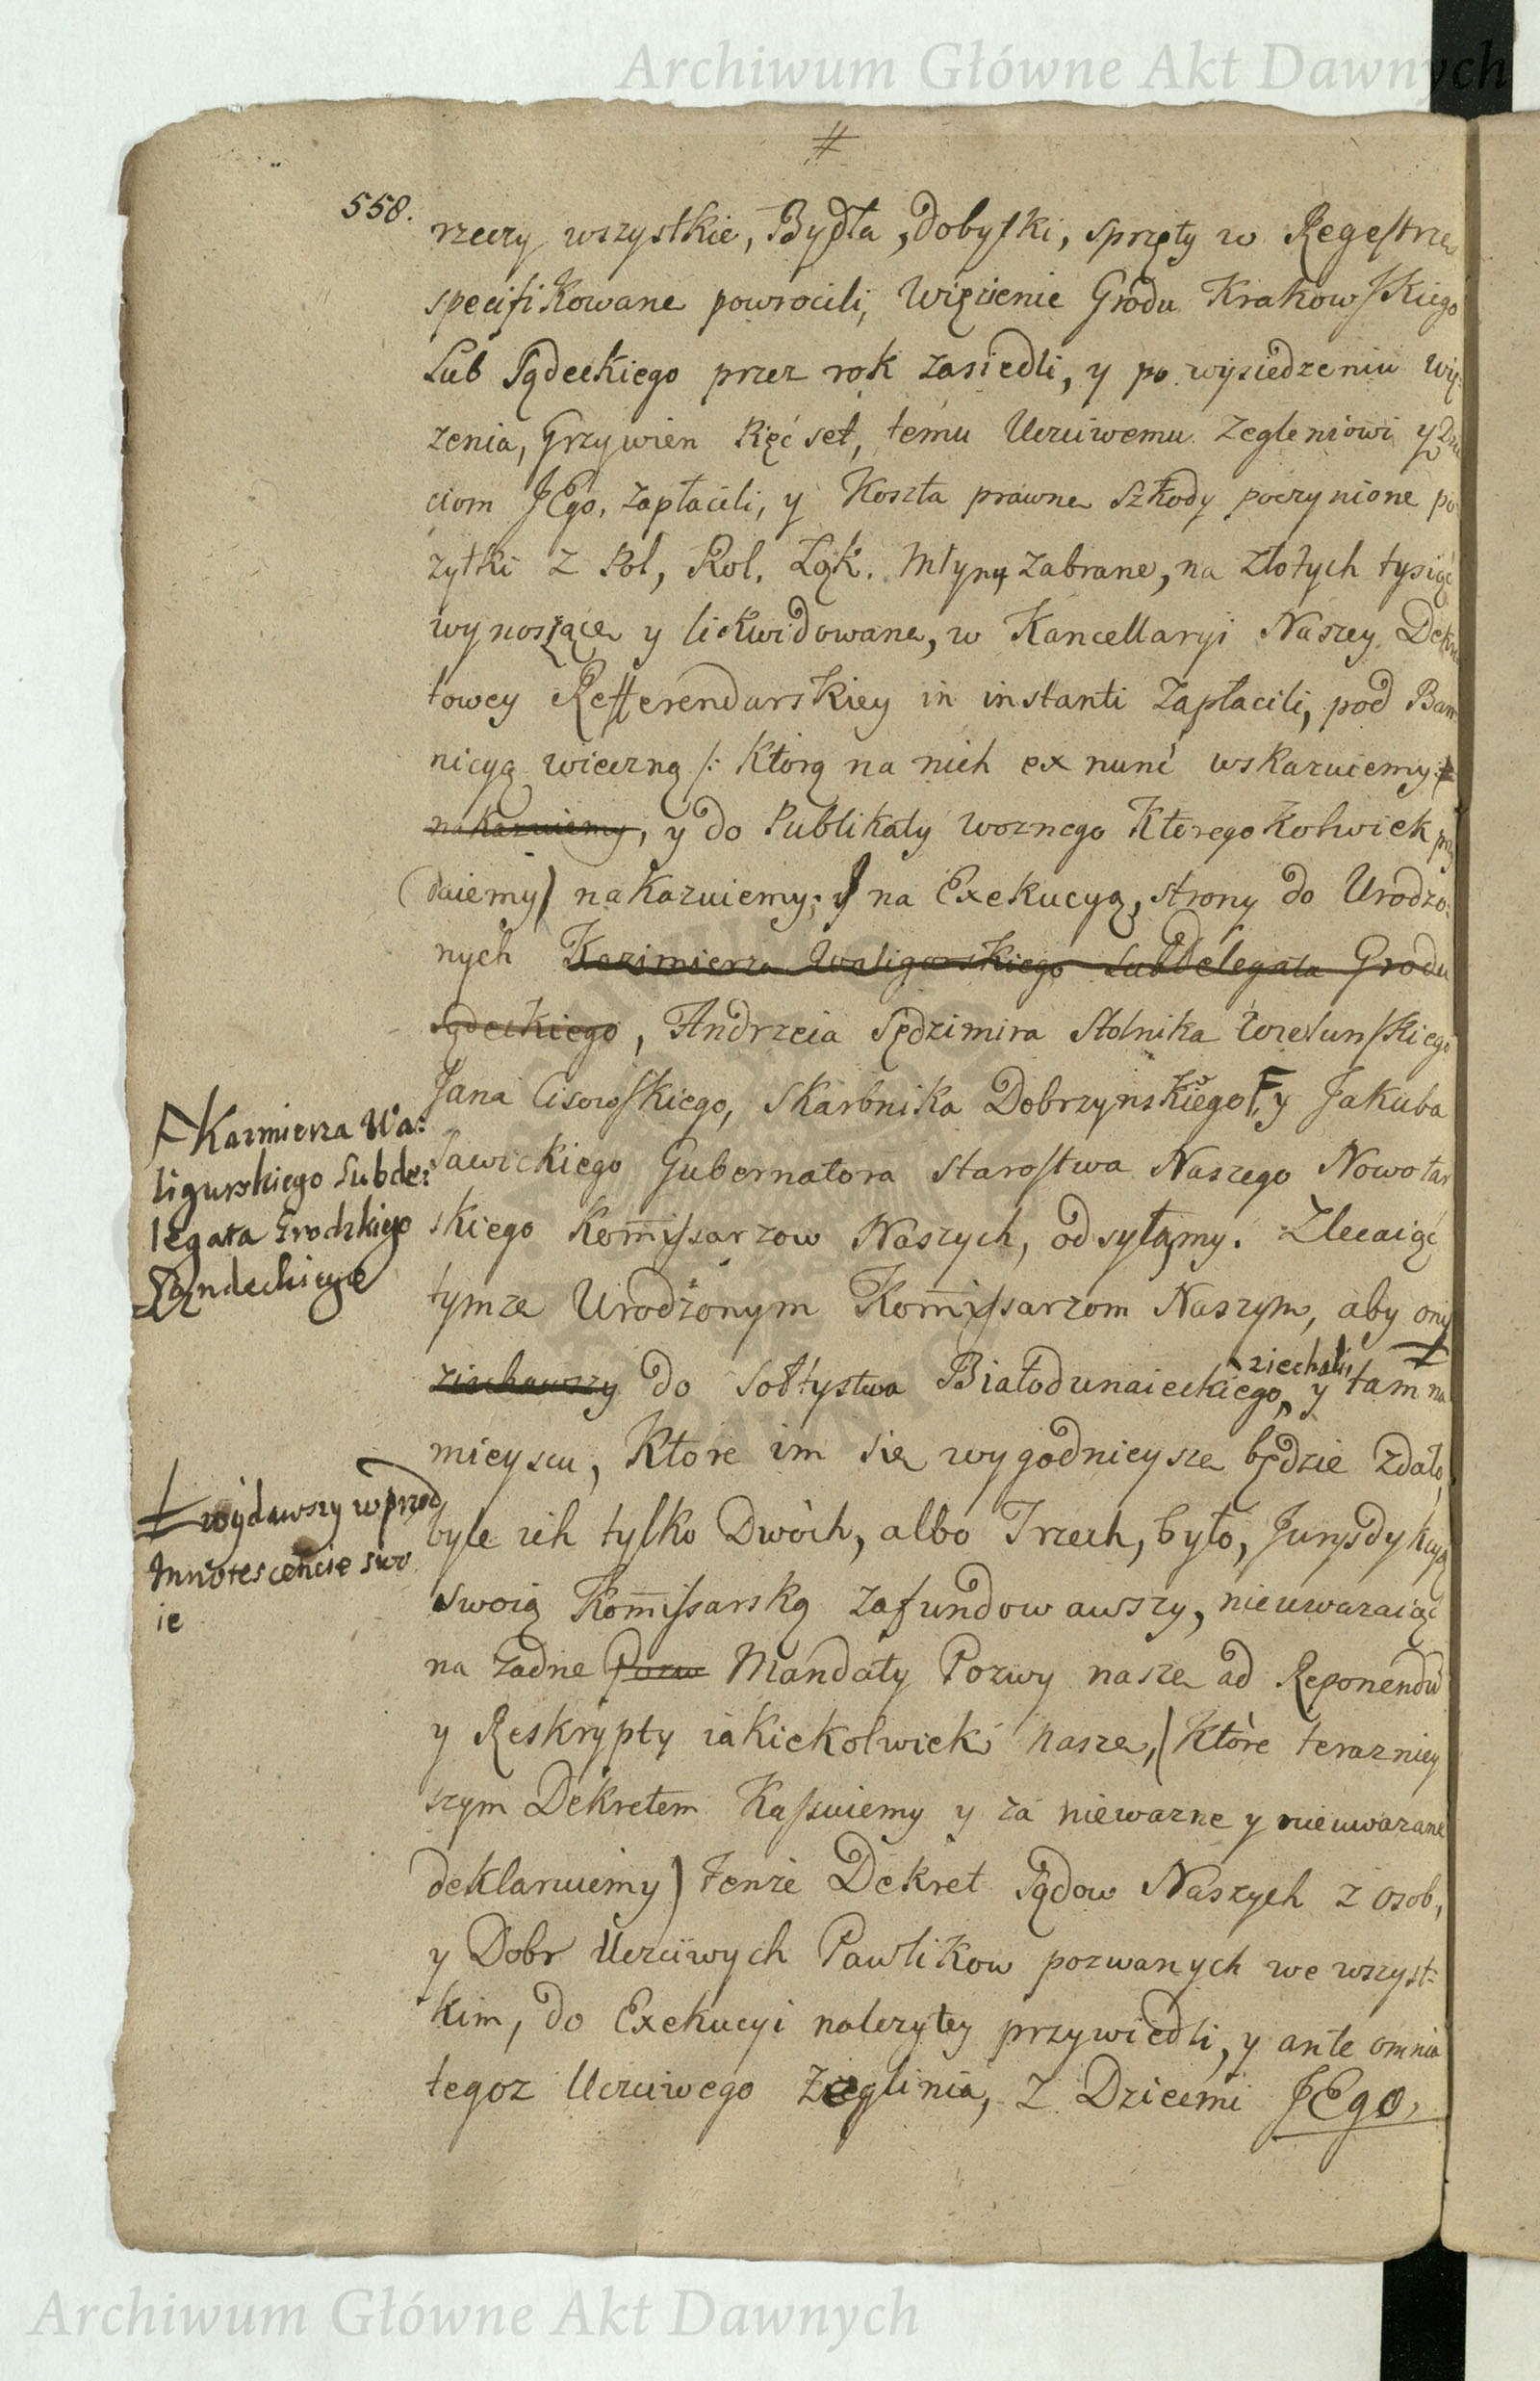 Archiwum Główne Akt Dawnych
#
558.
rzeczy wszystkie, Bydła, dobytki, sprzęty w Regestrze
specifikowane powrocili, Więzienie Grodu Krakowskiego
Lub Sądeckiego przez rok zasiedli, y po wysiedzeniu Wię:
zenia, Grzywien Pięć set, temu Uczciwemu Zegleniowi y Dzie
ciom JEgo, zapłacili, y Koszta prawne Szkody poczynione po
zytki z Pol, Rol, Łąk, Młyny zabrane, na złotych tysiąc
wynoszące y likwidowane, w Kancellaryi Naszey Dekre
towey Refferendarskiey in instanti Zapłacili, pod Ban
nicyą wieczną /: Ktorą na nich ex nunc wskazuiemy
nakazuiemy, y do Publikaty woznego Ktorego Kolwiek przy
(daiemy) nakazuiemy; y na Exekucyą, strony do Urodzo:
nych Kazimierza Waligorskiego SubDelegata Grodu
Sądeckiego, Andrzeia Sędzimira Stolnika Wieluńskiego
Jana Cisowskiego, Skarbnika Dobrzynskiego F, y Jakuba
Sawickiego Gubernatora Starostwa Naszego Nowotar
skiego Kommissarzow Naszych, odsyłamy. Zlecaiąc
tymze Urodzonym Kommissarzom Naszym, aby oni
ziechawszy do Sołtystwa Białodunaieckiego ziechali, y tam na
mieyscu, Ktore im się wygodnieysze będzie zdało,
byle ich tylko Dwóch, albo Trzech, było, Jurysdykcyą
swoią Kommissarską zafundowawszy, nieuwazaiąc
na zadne Pozw Mandaty Pozwy nasze ad Reponendū
y Reskrypty iakiekolwiek nasze, (Które terazniey
szym Dekretem Kassuiemy y za niewazne y nieuwazane
deklaruiemy) tenże Dekret Sądow Naszych z osob,
y Dobr Uczciwych Pawlikow pozwanych we wszyst:
kim, do Exekucyi nalezytey przywiedli, y ante omnia
tegoz Uczciwego Zeglinia, z Dziecmi JEgo,
F Kazmierza Wa:
ligurskiego Subde:
legata Grodzkiego
Sąndeckiego
ǂ wydawszy wprzod
Innotescencie swo
ie
Archiwum Główne Akt Dawnych